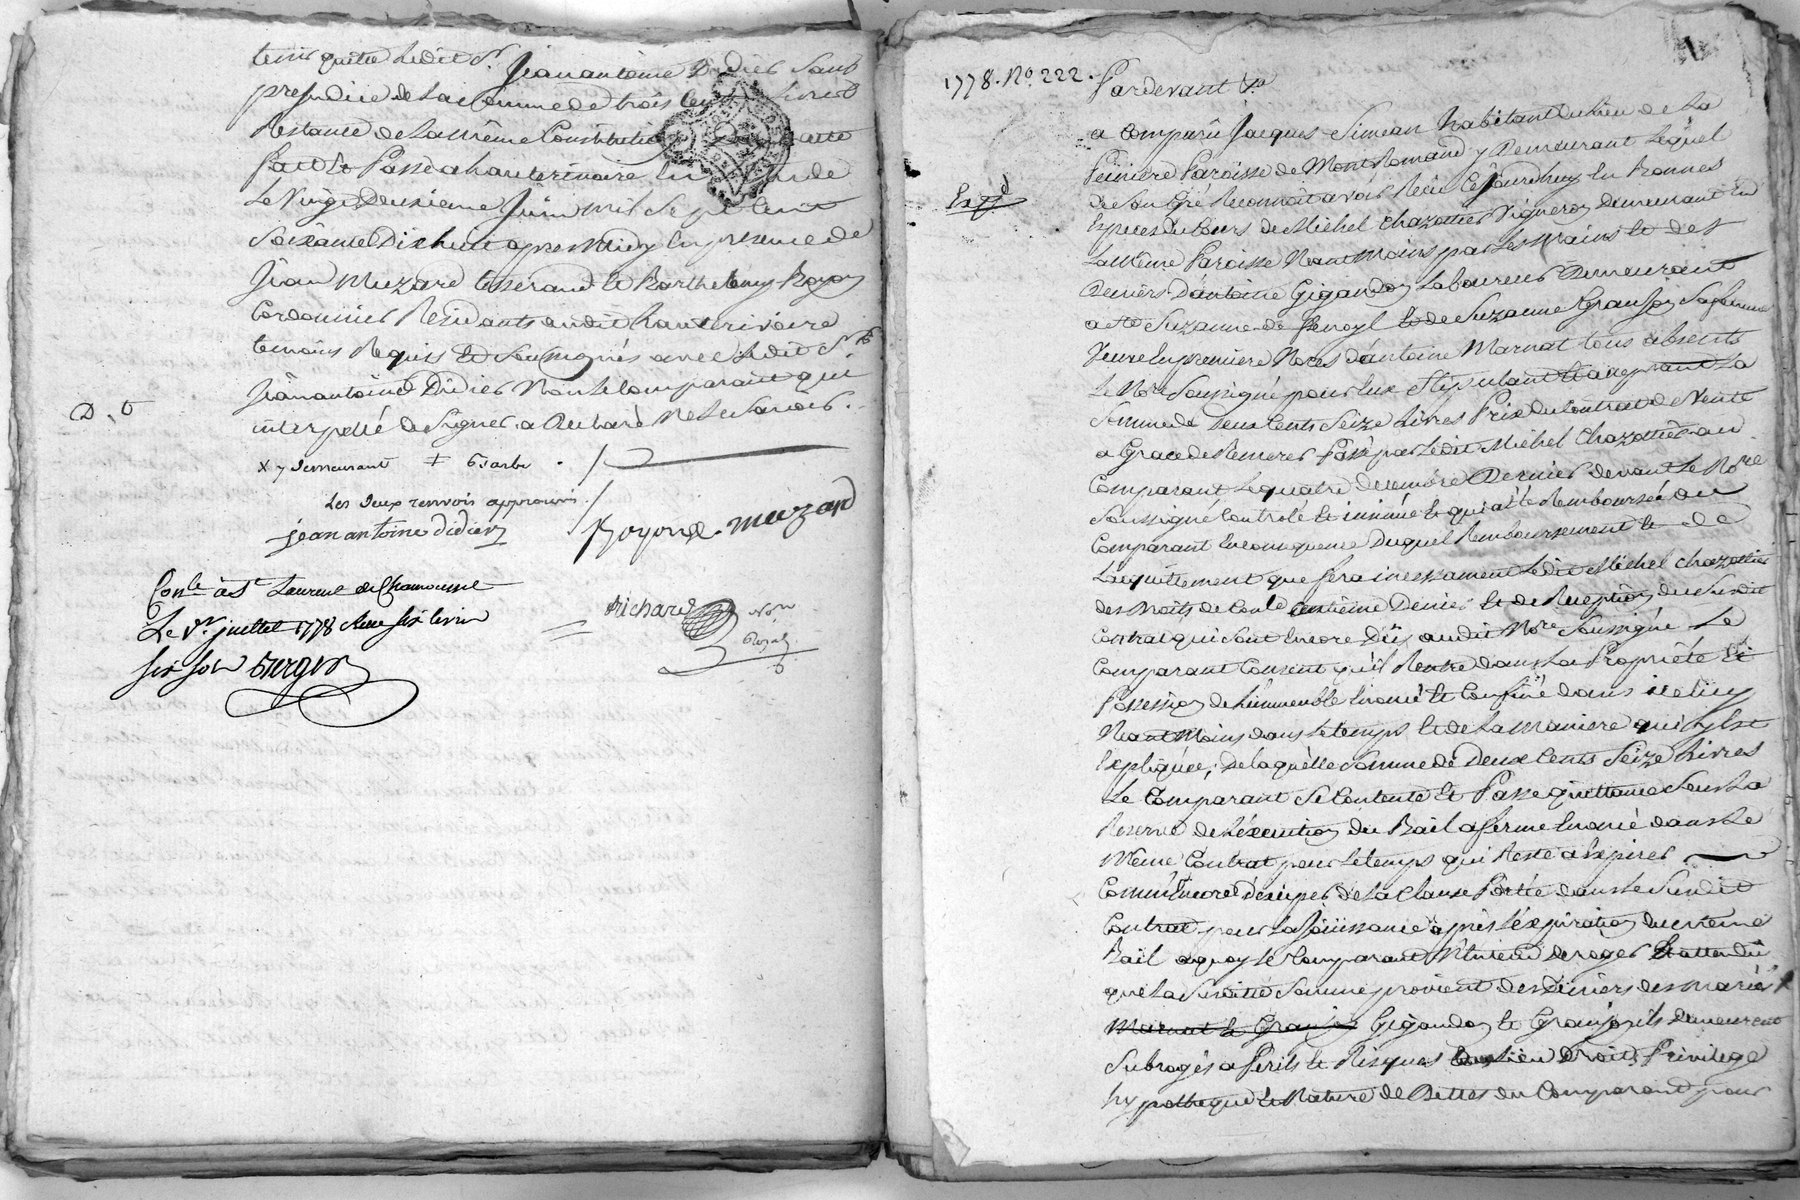 tenir quitte Ledit Sr. Jean antoine Didier Sans
prejudice de La somme de trois Cent Livres
Restante de La même Constitution
fait & Passé a hauterivoire En
Le Vingt Deuxieme Juin mil Sept Cent
Soixante Dix huit apres Midy En presence de
Jean Muzard tisserand & Barthelemy Royon
Cordonnier Residants audit hauterivoire
temoins Requis & Soussignés avec Ledit Sr.
Jean antoine Didier Non Le Comparant qui
interpellé de Signer a Declaré Ne Le Savoir.
D.
x y demeurant ‡
Les deux renvois approuvés
jean antoine didier
Royon muzard
Con.le à St. Laurent de Chamousset
Le 1er. juillet 1778 Reçu six livres
six sols
Richard Nore
Royal
1778. No. 222.
Pardevant &a
a Comparû Jacques Simean habitant du Lieu de La
Peiniere Paroisse de Montromand y Demeurant Lequel
de Son gré Reconnoit avoir Reçu Cejourdhuy En Bonnes
Especes du Cours de Michel Chazottier Vigneron demeurant En
La Même Paroisse Neantmoins par Les Mains & des
Deniers D'antoine Gigandon Laboureur Demeurant
a Ste Suzanne de & de Suzanne Granjon Sa femme
Veuve En premiere Noces d'antoine Marnat tous absents
Le Nore Soussigné pour Eux Stipulant & acceptant La
Somme de Deux Cents Seize Livres Prix du Contrat de Vente
a Grace de Remerer Passé par Ledit Michel Chazottier au
Comparant Le quatre decembre Dernier devant Le Nore
Soussigné Controlé & insinué & qui a été Remboursée au
Comparant En Consequence Duquel Remboursement & de
L'acquittement que fera incessament Ledit Michel Chazottier
des Droits de Con.le Centieme Denier & de Reception du Susdit
Contrat qui sont Encore Dûs audit Nore Soussigné Le
Comparant Consent qu'il Rentre dans La Proprieté &
Possession de L'immeuble Enoncé & Confiné dans iceluy
Neantmoins dans Le temps & de La Maniere qui y Est
Expliquée, De laquelle Somme de Deux Cents Seize Livres
Le Comparant Se Contente & Passe quittance Sous La
Reserve de L'éxecution du Bail a ferme Enoncé dans Le
Même Contrat pour Le temps qui Reste a Expirer
Comme Encore de La Clause Portée dans Le Susdit
Contrat pour La Joüissance après L'éxpiration du même
Bail a quoy Le Comparant N'Entend deroger Et attendu
que La Susditte Somme provient des Deniers des mariés
Marnat & Granjon Gigandon & Granjon ils Demeurent
Subrogés a Perils & Risques Lieu Droit, Privilege
hypotheque & Nature de Dettes du Comparant pour